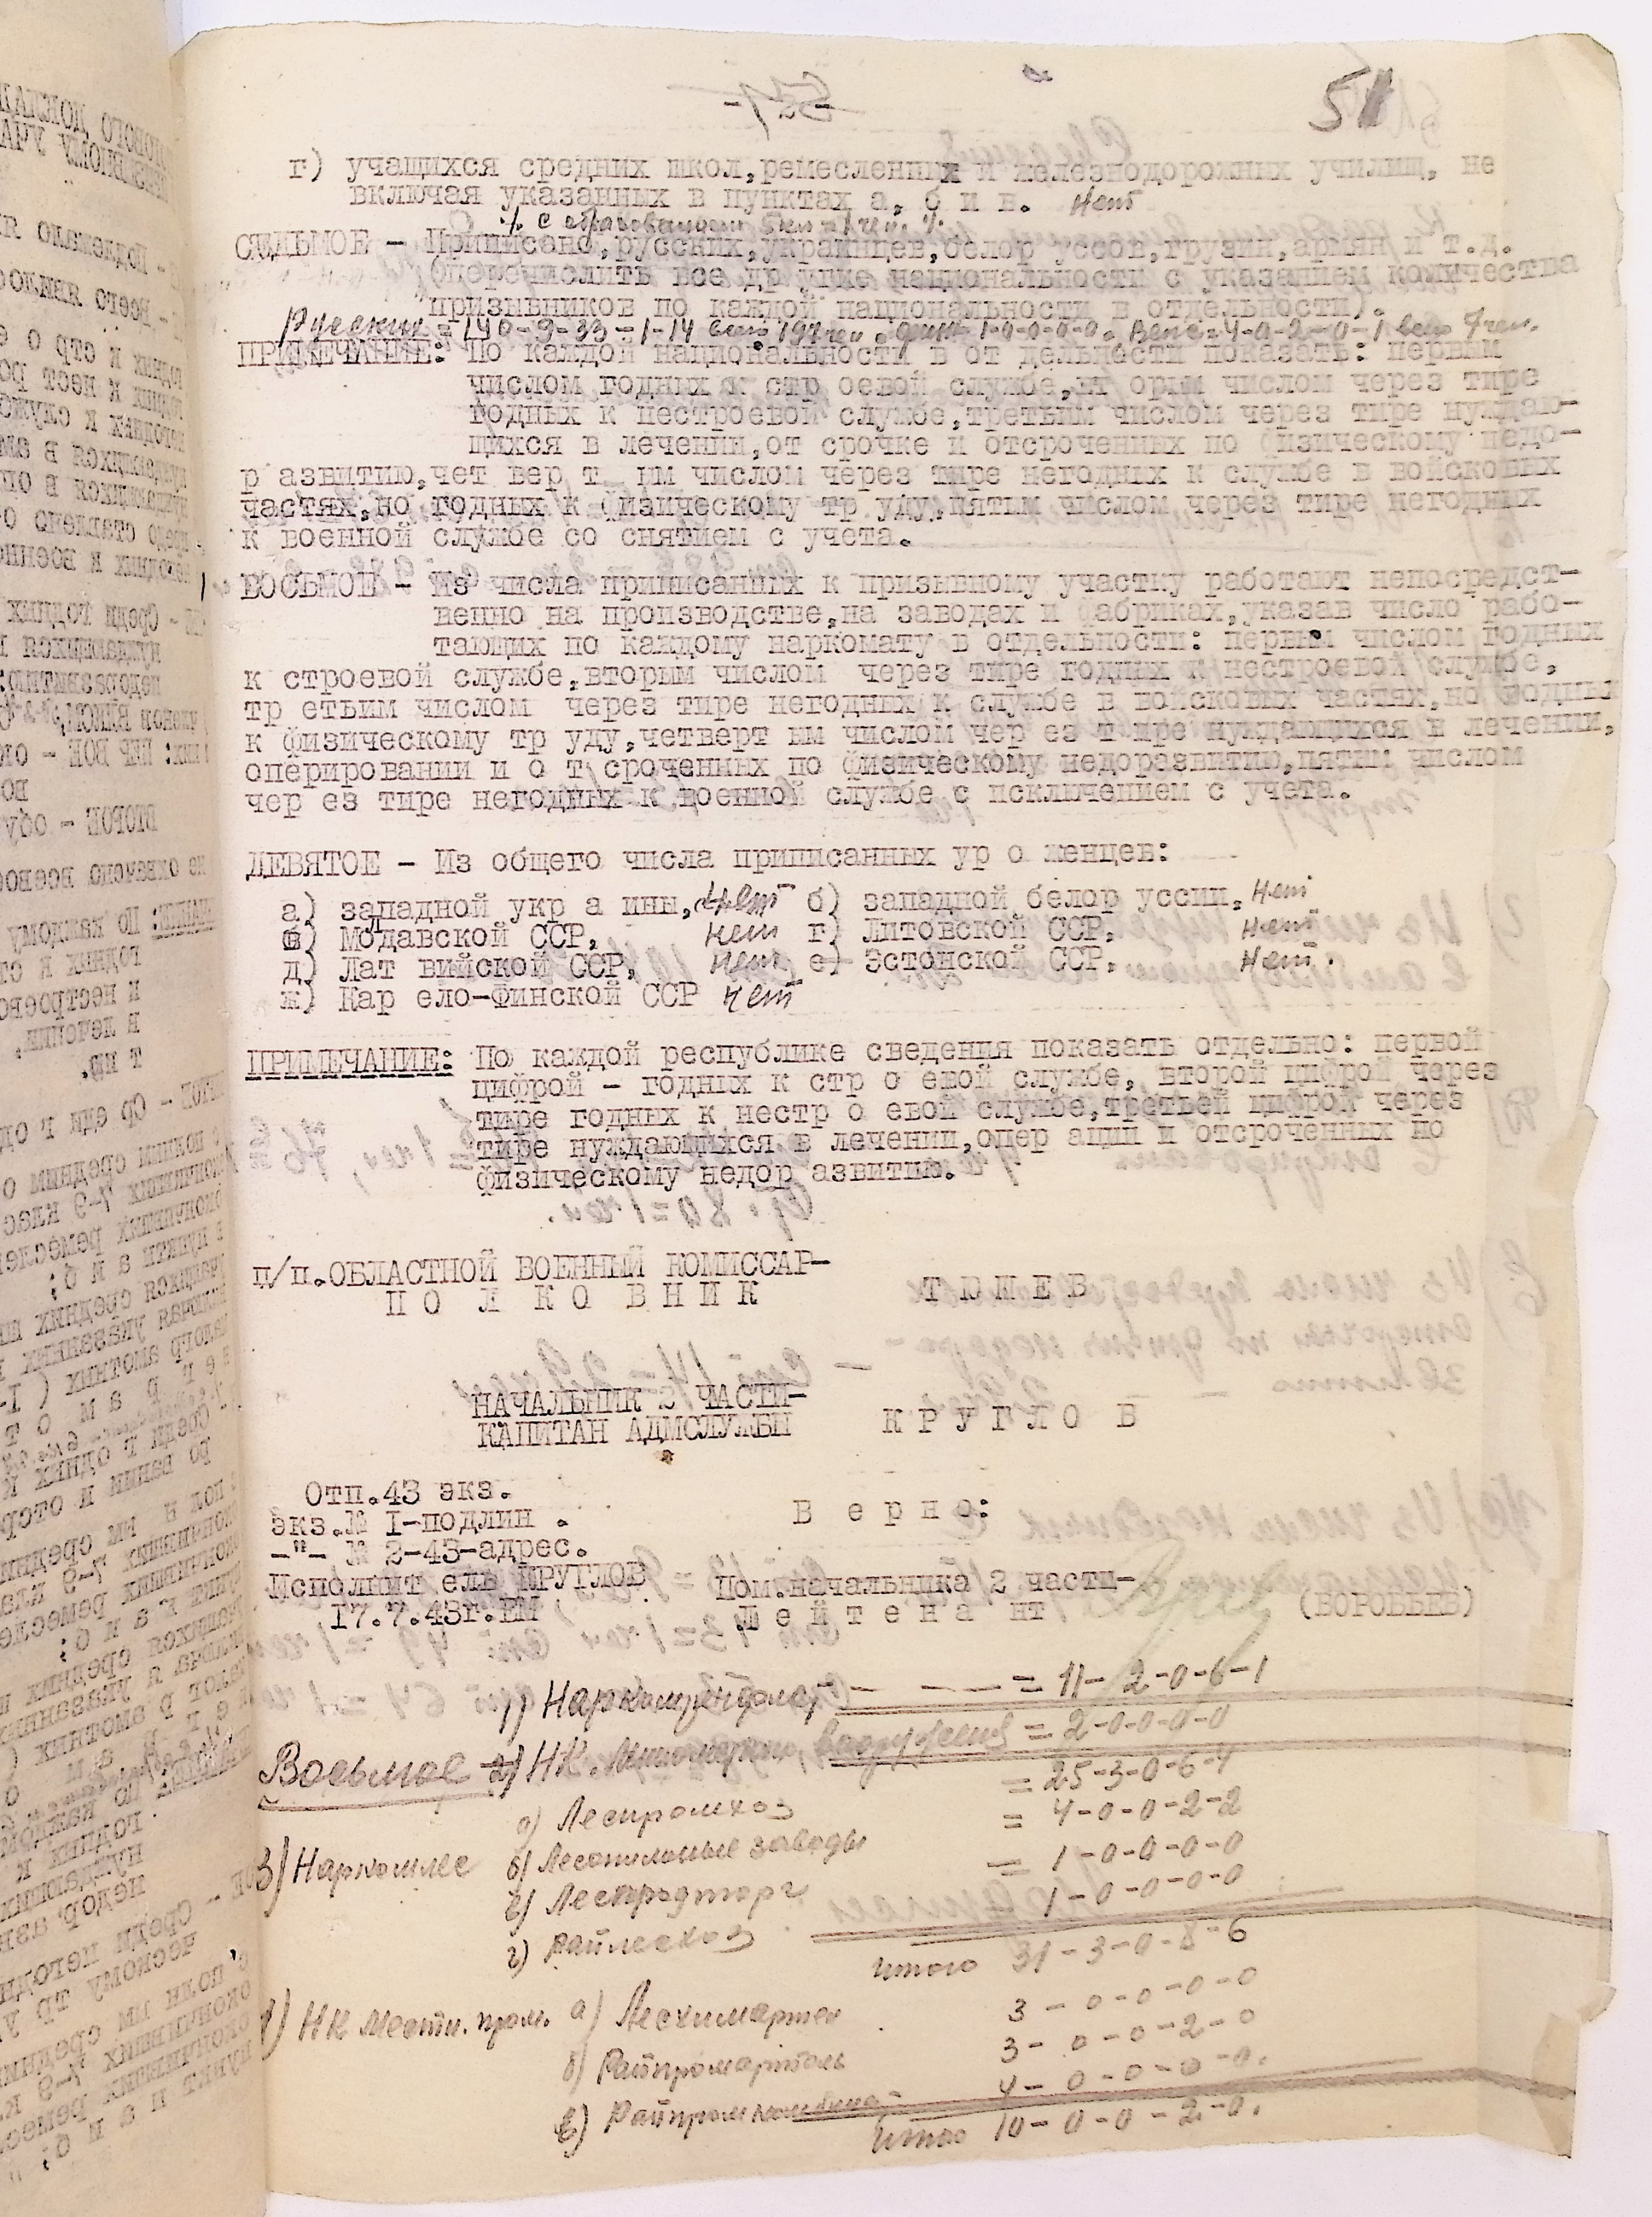 51
г) учащихся средних школ,ремесленных и железнодорожных училищ, не
включая указанных в пунктах а, б и в. Нет
СЕДЬМОЕ – Приписано,русских,украинцев,белор уссов,грузин,армян и т.д.
(перечислить все др угие национальности с указанием количества
призывников по каждой национальности в отдельности).
Русских = 140-9-33-1-14 всего 197 чел. 1-0-0-0-0. Вепс.-4-0-2-0-1 всего 7 чел.
ПРИМЕЧАНИЕ: По каждой национальности в от дельности показать: первым
числом годных к стр оевой службе,вт орым числом через тире
годных к нестроевой службе,третьим числом через тире нуждаю-
щихся в лечении,от срочке и отсроченных по физическому недо-
р азвитию,чет вер т ым числом через тире негодных к службе в войсковых
частях,но годных к физическому тр уду,пятым числом через тире негодных
к военной службе со снятием с учета.
ВОСЬМОЕ – Из числа приписанных к призывному участку работают непосредст-
венно на производстве,на заводах и фабриках,указав число рабо-
тающих по каждому наркомату в отдельности: первым числом годных
к строевой службе,вторым числом через тире годных к нестроевой службе,
тр етьим числом через тире негодных к службе в войсковых частях,но годных
к физическому тр уду,четверт ым числом чер ез т ире нуждающихся в лечении,
оперировании и о т сроченных по физическому недоразвитию,пятым числом
чер ез тире негодных к военной службе с исключением с учета.
ДЕВЯТОЕ – Из общего числа приписанных ур о женцев:
а) западной укр а ины, нет б) западной белор уссии. Нет
в) Модавской ССР, нет г) Литовской ССР, нет
д) Лат вийской ССР, нет е) Эстонской ССР. Нет.
ж) Кар ело-Финской ССР нет
ПРИМЕЧАНИЕ: По каждой республике сведения показать отдельно: первой
цифрой – годных к стр о евой службе, второй цифрой через
тире годных к нестр о евой службе,третьей цифрой через
тире нуждающихся в лечении,опер ации и отсроченных по
физическому недор азвитию.
п/п.ОБЛАСТНОЙ ВОЕННЫЙ КОМИССАР–
П О Л К О В Н И К
НАЧАЛЬНИК 2 ЧАСТИ–
КАПИТАН АДМСЛУЖБЫ К Р У Г Л О В
Отп.43 экз.
экз.№ I-подлин .
-"- № 2-43-адрес.
В е р н о:
Исполнит ель КРУГЛОВ
17.7.43г.ЕМ
Пом.начальника 2 части–
Л е й т е н а нт (ВОРОБЬЕВ)
= 11-2-0-6-1
Восьмое 2) НК вооружения = 2-0-0-0-0
3) Наркомлес
а) Леспромхоз = 25-3-0-6-4
б) Лесопильные заводы = 4-0-0-2-2
в) Леспродторг = 1-0-0-0-0
г) Райлесхоз 1-0-0-0-0
Итого 31-3-0-8-6
4) НК Местн. пром. а) Лесхимартел 3-0-0-0-0
б) Райпромартель 3-0-0-2-0
в) Райпромкомбинат 4-0-0-0-0.
Итого 10-0-0-2-0.